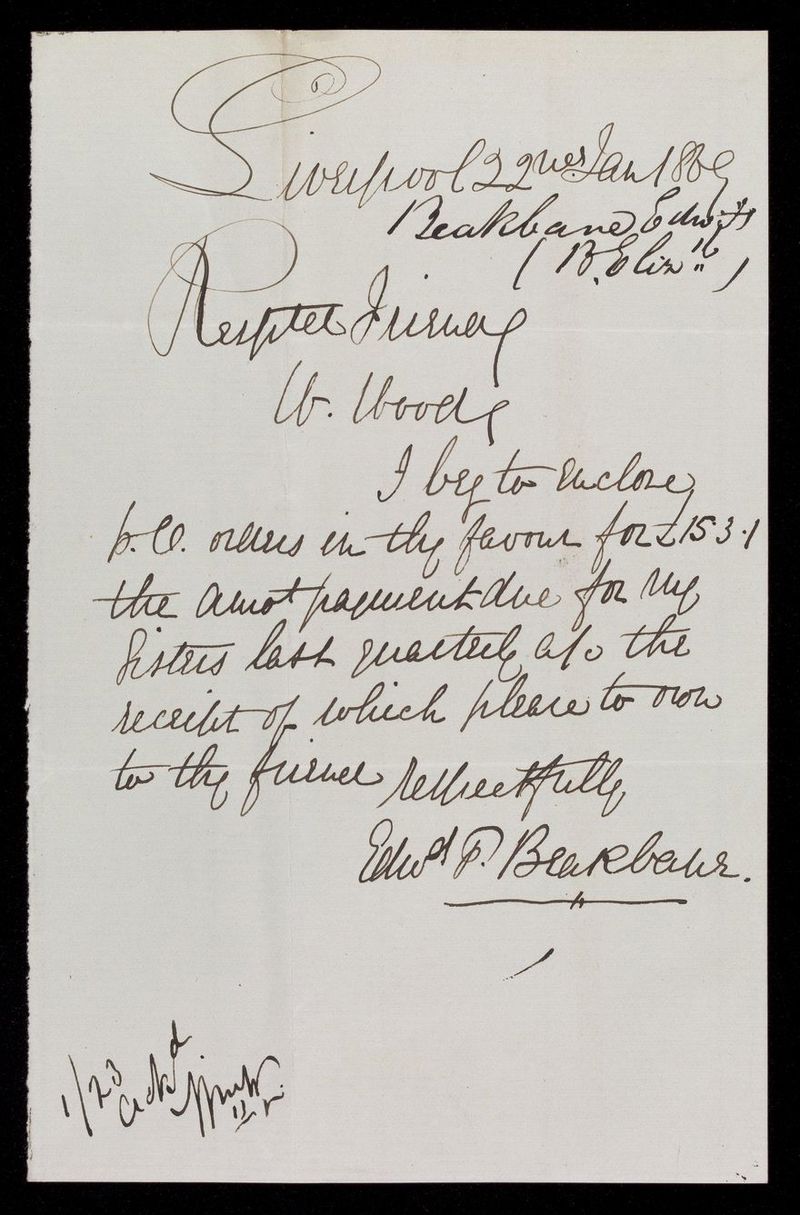 Liverpool 22nd Jan 1869
Beakbane Edwd
(B. Elizth)
Resptd Friend
W. Wood
I beg to enclose
p.O. orders in thy favour for £15.3.1
the amot payment due for my
Sisters last quarterly a/c the
receipt of which please to own
to thy friend respectfully
Edwd P. Beakbane.
1/23
ackd